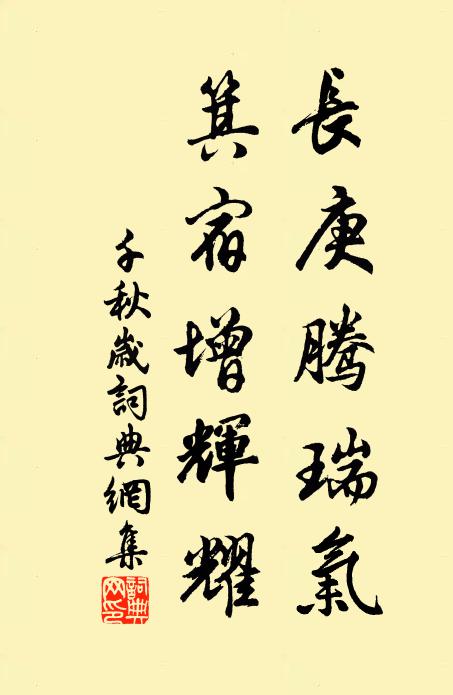 長庚騰瑞氣
箕宿增輝耀
千秋歲詞典網集
詞典網印